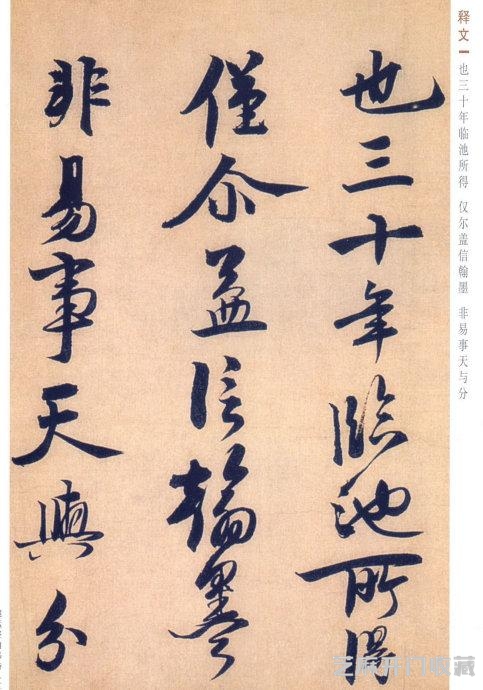 也三十年臨池所得
僅尒盖信翰墨
非易事天與分
释文 也三十年临池所得 仅尔盖信翰墨 非易事天与分
芝麻开门收藏